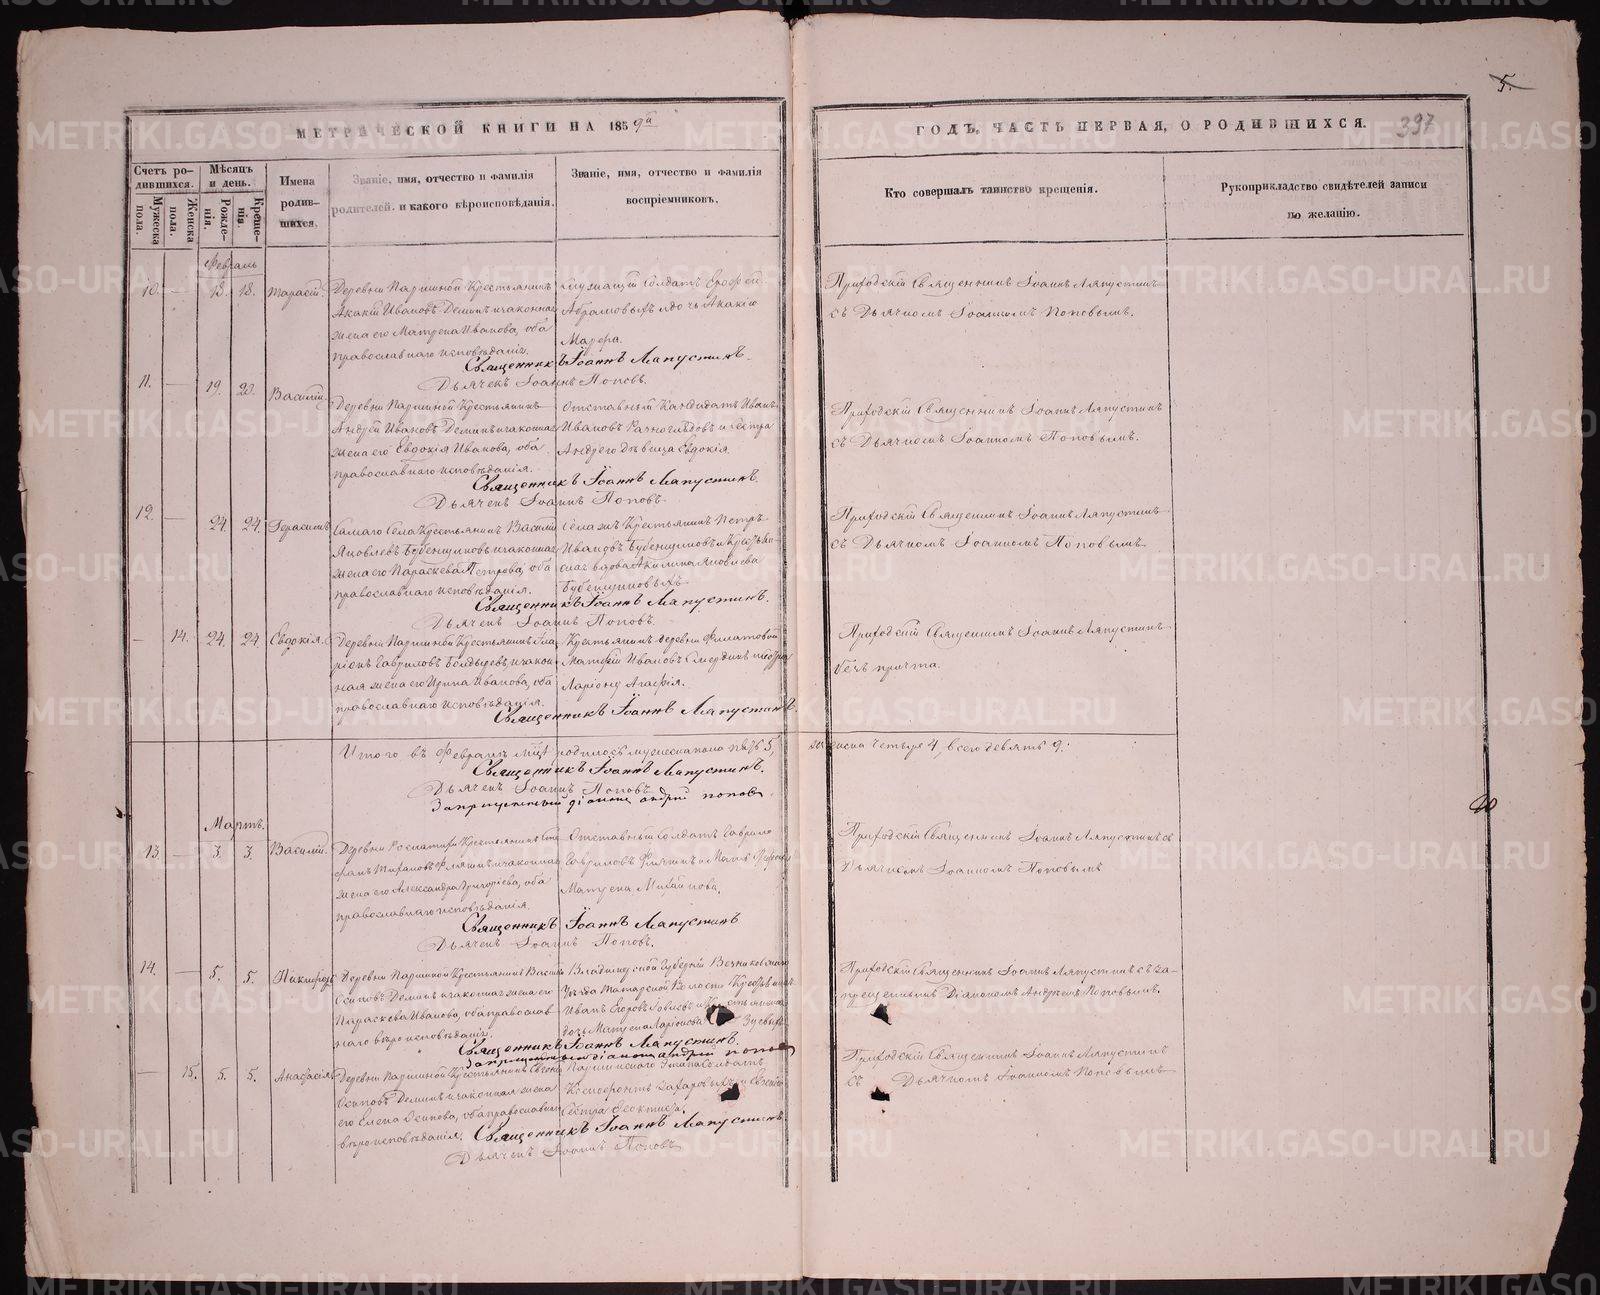 5.
МЕТРИЧЕСКОЙ КНИГИ НА 1859й
ГОДЪ, ЧАСТЬ ПЕРВАЯ, О РОДИВШИХСЯ.
397
Счетъ родившихся.
Мужеска пола.
Женска пола.
Мѣсяцъ и день.
Рожденія.
Крещенія.
Имена родившихся.
Званіе, имя, отчество и фамилія
родителей, и какого вѣроисповѣданія.
Званіе, имя, отчество и фамилія
воспріемниковъ.
Кто совершалъ таинство крещенія.
Рукоприкладство свидѣтелей записи
по желанію.
Февраль
10. — 18. 18. Тарасій.
Деревни Паршиной Крестьянинъ
Акакій Ивановъ Деминъ и законная
жена его Матрена Иванова, оба
православнаго исповѣданія.
служащій Солдатъ Ерофей
Абрамовыхъ и дочь Акакію
Марфа.
Приходскій Священникъ Іоаннъ Ляпустинъ
съ Дьячкомъ Іоанномъ Поповымъ.
Священникъ Іоаннъ Ляпустинъ.
Дьячекъ Іоаннъ Поповъ.
11. — 19. 22. Василій.
Деревни Паршиной Крестьянинъ
Андрей Ивановъ Деминъ и законная
жена его Евдокія Иванова, оба
православнаго исповѣданія.
Отставный Кандидатъ Иванъ
Ивановъ Разноглѣдовъ и сестра
Андрего Дѣвица Евдокія.
Приходскій Священникъ Іоаннъ Ляпустинъ
съ Дьячкомъ Іоанномъ Поповымъ.
Священникъ Іоаннъ Ляпустинъ.
Дьячекъ Іоаннъ Поповъ.
12. — 24. 24. Герасимъ
Самаго Села Крестьянинъ Василій
Яковлевъ Бубенщиковъ и законная
жена его Параскева Петрова, оба
православнаго исповѣданія.
Села Крестьянинъ Петръ
Ивановъ Бубенщиковъ и Крестьян-
вдова Акилина Яковлева
Бубенщиковыхъ
Приходскій Священникъ Іоаннъ Ляпустинъ
съ Дьячкомъ Іоанномъ Поповымъ.
Священникъ Іоаннъ Ляпустинъ.
Дьячекъ Іоаннъ Поповъ.
— 14. 24. 24. Евдокія.
Деревни Паршиной Крестьянинъ Ила-
ріонъ Гавриловъ Болдыревъ и закон-
ная жена его Ирина Иванова, оба
православнаго исповѣданія.
Крестьянинъ деревни Филатовой
Матвей Ивановъ Смердинъ и
Ларіону Агафія.
Приходскій Священникъ Іоаннъ Ляпустинъ
безъ причта.
Священникъ Іоаннъ Ляпустинъ.
Итого въ Февралѣ мцѣ родилось мужеска пола пять 5,
женска четыре 4, всего девять 9.
Священникъ Іоаннъ Ляпустинъ.
Дьячекъ Іоаннъ Поповъ
Запрещенный діаконъ Андрей Поповъ.
Мартъ.
13. — 3. 3. Василій.
Деревни Крестьянинъ Сте-
фанъ Тихановъ Филяшинъ и законная
жена его Александра Григоріева, оба
православнаго исповѣданія.
Отставный Солдатъ Гаврило
Гавриловъ и
Матрена Михайлова.
Приходскій Священникъ Іоаннъ Ляпустинъ съ
Дьячкомъ Іоанномъ Поповымъ
Священникъ Іоаннъ Ляпустинъ
Дьячекъ Іоаннъ Поповъ.
14. — 5. 5. Никифоръ
Деревни Паршиной Крестьянинъ Василій
Осиповъ Деминъ и законная жена его
Параскева Иванова, оба православ-
наго вѣроисповѣданія.
Владимірской Губерніи Вязниковскаго
Уѣзда Татарской Волости Крестьянинъ
Иванъ Егоровъ и Крестьянина
дочь Матрена Ларіонова
Приходскій Священникъ Іоаннъ Ляпустинъ съ за-
прещеннымъ Діакономъ Андреемъ Поповымъ.
Священникъ Іоаннъ Ляпустинъ.
Запрещенный діаконъ Андрей Поповъ
— 15. 5. 5. Анастасія.
Деревни Паршиной Крестьянинъ Евгеній
Осиповъ Деминъ и законная жена
его Елена Осипова, оба православнаго
вѣроисповѣданія.
Паршинскаго Этапа Солдатъ
Ксенофонтъ Захаровыхъ и Евгенія
Сестра Феоктиста.
Приходскій Священникъ Іоаннъ Ляпустинъ
съ Дьячкомъ Іоанномъ Поповымъ
Священникъ Іоаннъ Ляпустинъ
Дьячекъ Іоаннъ Поповъ
METRIKI.GASO-URAL.RU